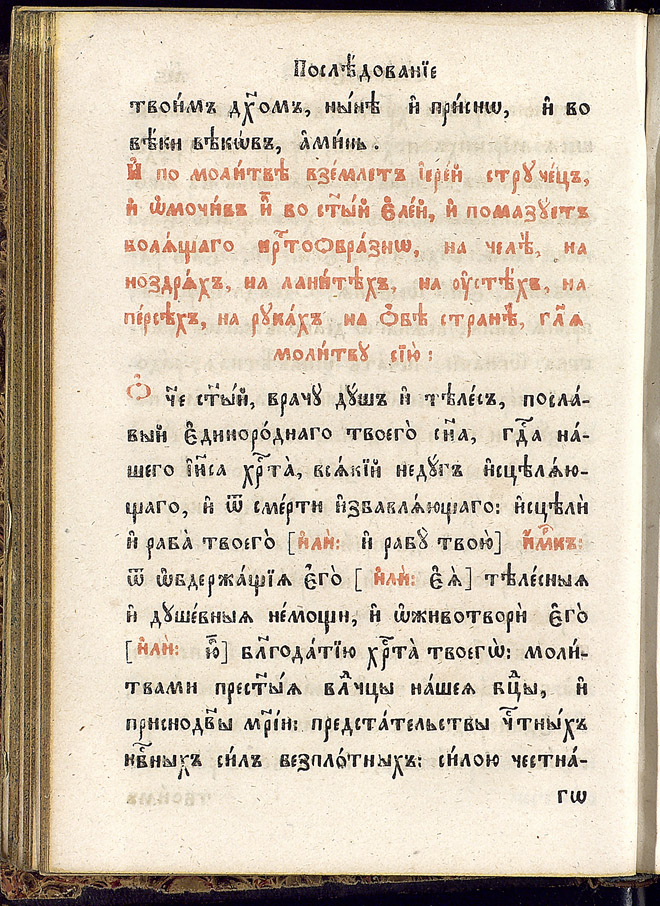 Послѣ́дованїе
твои́мъ дх҃омъ, ны́нѣ и҆ при́снѡ, и҆ во
вѣ́ки вѣкѡ́въ, а҆ми́нь.
И҆ по моли́твѣ взе́млетъ і҆ере́й струче́цъ,
и҆ ѡ҆мочи́въ и҆̀ во ст҃ы́й є҆ле́й, и҆ помазꙋетъ
болѧ́щаго крⷭ҇тоѻбра́знѡ, на челѣ̀, на
ноздрѧ́хъ, на лани́тѣхъ, на ᲂу҆стѣ́хъ, на
пе́рсѣхъ, на рꙋка́хъ на ѻ҆́бѣ странѣ̀, гл҃ѧ
моли́твꙋ сїю̀:
Ѻ҆́ч҃е ст҃ы́й, врачꙋ̀ дꙋ́шъ и҆ тѣле́съ, посла́-
вый є҆диноро́днаго твоего̀ сн҃а, гдⷭ҇а на́-
шего і҆и҃са хрⷭ҇та̀, всѧ́кїй недꙋ́гъ и҆сцѣлѧ́ю-
щаго, и҆ ѿ сме́рти и҆збавлѧ́ющаго: и҆сцѣлѝ
и҆ раба̀ твоего̀ [и҆лѝ: и҆ рабꙋ̀ твою̀] и҆́мⷬ҇къ:
ѿ ѡ҆бдержа́щїѧ є҆го̀ [и҆лѝ: є҆ѧ̀] тѣле́сныѧ
и҆ дꙋше́вныѧ не́мощи, и҆ ѡ҆животворѝ є҆го̀
[и҆лѝ: ю҆̀] блг҃ода́тїю хрⷭ҇та̀ твоегѡ̀: моли́-
твами прест҃ы́ѧ влⷣчцы на́шеѧ бцⷣы, и҆
приснодв҃ы мр҃і́и: предста́тельствы чⷭ҇тны́хъ
нбⷭ҇ныхъ си́лъ безпло́тныхъ: си́лою честна́-
гѡ